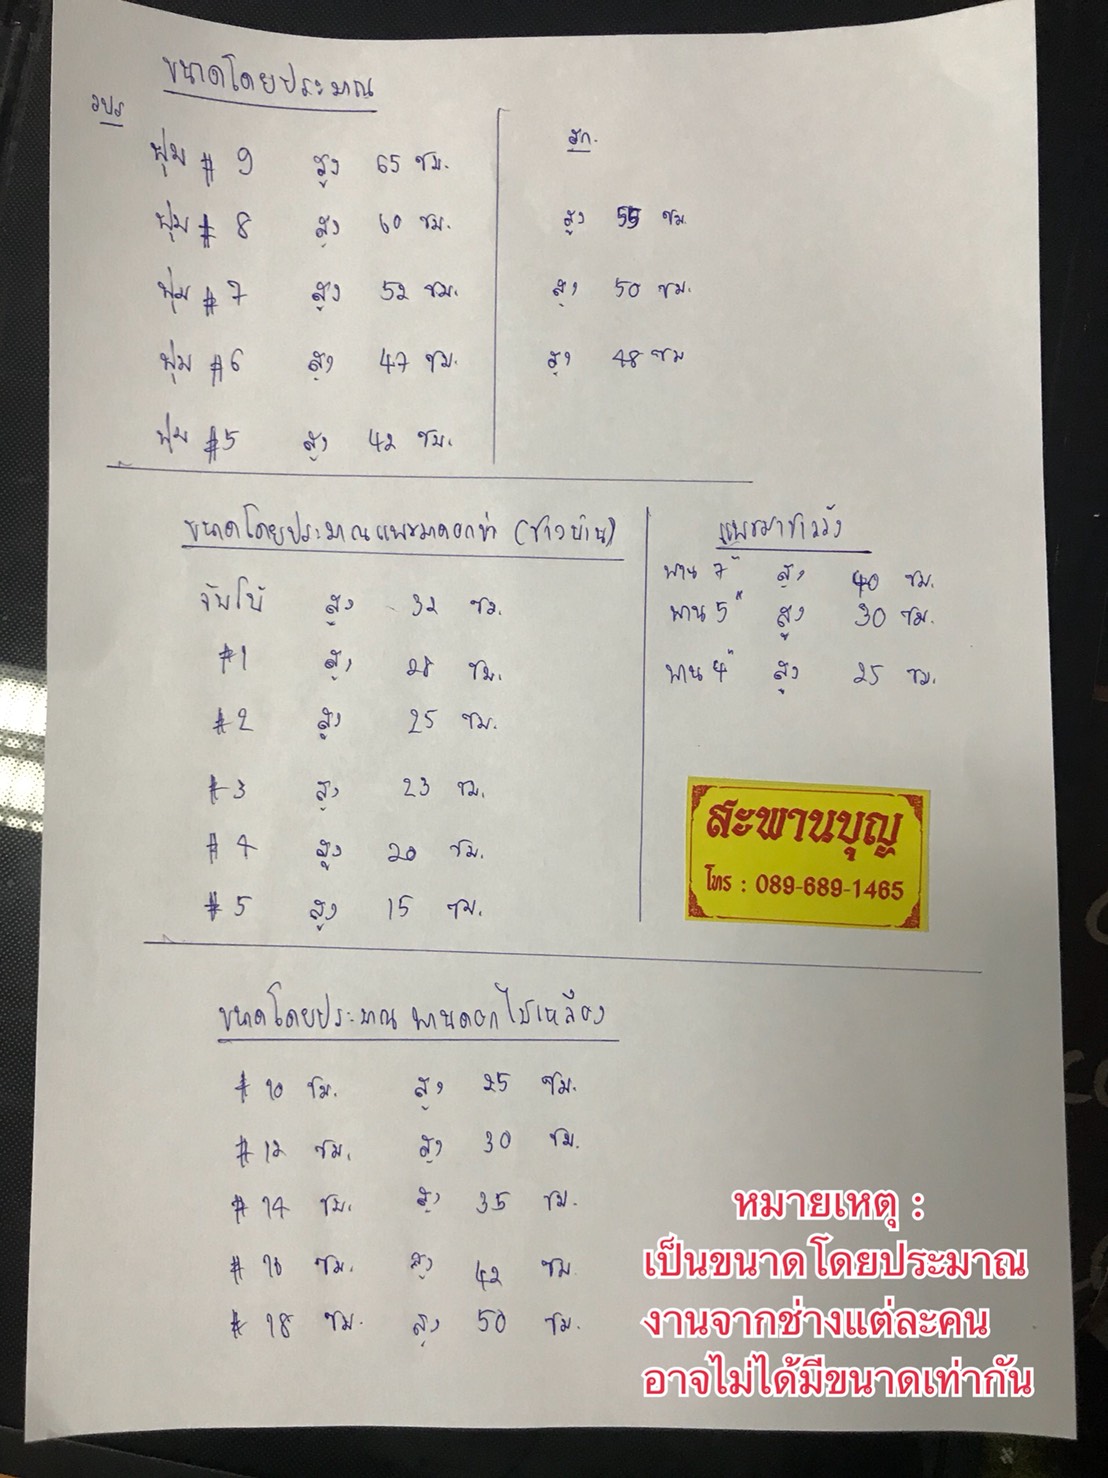 ขนาดโดยประมาณ
วปร
สก.
พุ่ม # 9 สูง 65 ซม.
พุ่ม # 8 สูง 60 ซม. สูง 55 ซม.
พุ่ม # 7 สูง 52 ซม. สูง 50 ซม.
พุ่ม #6 สูง 47 ซม. สูง 48 ซม
พุ่ม #5 สูง 42 ซม.
ขนาดโดยประมาณ แพรมาดอกข่า (ชาวบ้าน)
จัมโบ้ สูง 32 ซม.
#1 สูง 28 ซม.
#2 สูง 25 ซม.
#3 สูง 23 ซม.
# 4 สูง 20 ซม.
# 5 สูง 15 ซม.
ชาววัง
พาน 7" สูง 40 ซม.
พาน 5" สูง 30 ซม.
พาน 4" สูง 25 ซม.
สะพานบุญ
โทร : 089-689-1465
ขนาดโดยประมาณ พานดอกไม้เหลือง
# 10 ซม. สูง 25 ซม.
# 12 ซม. สูง 30 ซม.
# 14 ซม. สูง 35 ซม.
# 16 ซม. สูง 42 ซม.
# 18 ซม. สูง 50 ซม.
หมายเหตุ :
เป็นขนาดโดยประมาณ
งานจากช่างแต่ละคน
อาจไม่ได้มีขนาดเท่ากัน